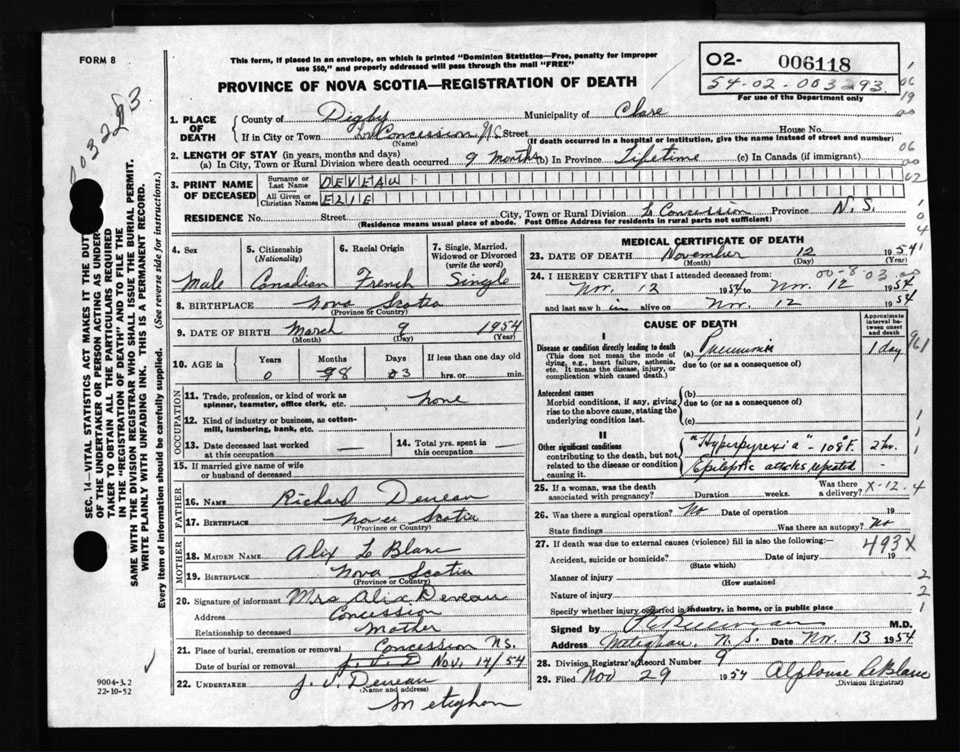 FORM 8
This form, if placed in an envelope, on which is printed "Dominion Statistics—Free, penalty for improper
use $50," and properly addressed will pass through the mail "FREE"
PROVINCE OF NOVA SCOTIA—REGISTRATION OF DEATH
02- 006118
54-02-003293
For use of the Department only
003293
1. PLACE OF DEATH
County of Digby Municipality of Clare
If in City or Town Concession N.S. Street House No.
(Name) (If death occurred in a hospital or institution, give the name instead of street and number)
2. LENGTH OF STAY (in years, months and days)
(a) In City, Town or Rural Division where death occurred 9 months (b) In Province Lifetime (c) In Canada (if immigrant)
3. PRINT NAME OF DECEASED
Surname or Last Name DEVEAU
All Given or Christian Names ELIE
RESIDENCE No. Street City, Town or Rural Division Concession Province N.S.
(Residence means usual place of abode. Post Office Address for residents in rural parts not sufficient)
4. Sex Male
5. Citizenship (Nationality) Canadian
6. Racial Origin French
7. Single, Married, Widowed or Divorced (write the word) Single
8. BIRTHPLACE Nova Scotia
(Province or Country)
9. DATE OF BIRTH March 9 1954
(Month) (Day) (Year)
10. AGE in Years 0 Months 8 Days 3 If less than one day old hrs. or min.
OCCUPATION
11. Trade, profession, or kind of work as spinner, teamster, office clerk, etc. none
12. Kind of industry or business, as cotton-mill, lumbering, bank, etc.
13. Date deceased last worked at this occupation
14. Total yrs. spent in this occupation
15. If married give name of wife or husband of deceased
FATHER
16. NAME Richard Deveau
17. BIRTHPLACE Nova Scotia
(Province or Country)
MOTHER
18. MAIDEN NAME Alix Le Blanc
19. BIRTHPLACE Nova Scotia
(Province or Country)
20. Signature of informant Mrs Alix Deveau
Address Concession
Relationship to deceased Mother
21. Place of burial, cremation or removal Concession N.S.
Date of burial or removal Nov. 14/54
22. UNDERTAKER J. V. Deveau
(Name and address)
Meteghan
MEDICAL CERTIFICATE OF DEATH
23. DATE OF DEATH November 12 1954
(Month) (Day) (Year)
24. I HEREBY CERTIFY that I attended deceased from:
Nov. 12 1954 to Nov. 12 1954
and last saw h im alive on Nov. 12 1954
CAUSE OF DEATH
Approximate interval between onset and death
I
Disease or condition directly leading to death
(This does not mean the mode of dying, e.g., heart failure, asthenia, etc. It means the disease, injury, or complication which caused death.)
(a) Pneumonia 1 day
due to (or as a consequence of)
Antecedent causes
Morbid conditions, if any, giving rise to the above cause, stating the underlying condition last.
(b)
due to (or as a consequence of)
(c)
II
Other significant conditions
contributing to the death, but not related to the disease or condition causing it.
"Hyperpyrexia" - 108°F. 2 hr.
Epileptic attacks, repeated -
25. If a woman, was the death associated with pregnancy? Duration weeks. Was there a delivery? X-12.4
26. Was there a surgical operation? No Date of operation 19
State findings Was there an autopsy? No
27. If death was due to external causes (violence) fill in also the following: 493X
Accident, suicide or homicide? Date of injury 19
(State which)
Manner of injury
(How sustained
Nature of injury
Specify whether injury occurred in industry, in home, or in public place
Signed by M.D.
Address Meteghan, N.S. Date Nov. 13 1954
28. Division Registrar's Record Number 9
29. Filed Nov 29 1954 Alphonse LeBlanc
(Division Registrar)
9004-3.2
22-10-52
SEC. 14—VITAL STATISTICS ACT MAKES IT THE DUTY
OF THE UNDERTAKER OR PERSON ACTING AS UNDER-
TAKER TO OBTAIN ALL THE PARTICULARS REQUIRED
IN THE "REGISTRATION OF DEATH" AND TO FILE THE
SAME WITH THE DIVISION REGISTRAR WHO SHALL ISSUE THE BURIAL PERMIT.
WRITE PLAINLY WITH UNFADING INK. THIS IS A PERMANENT RECORD.
Every item of information should be carefully supplied. (See reverse side for instructions.)